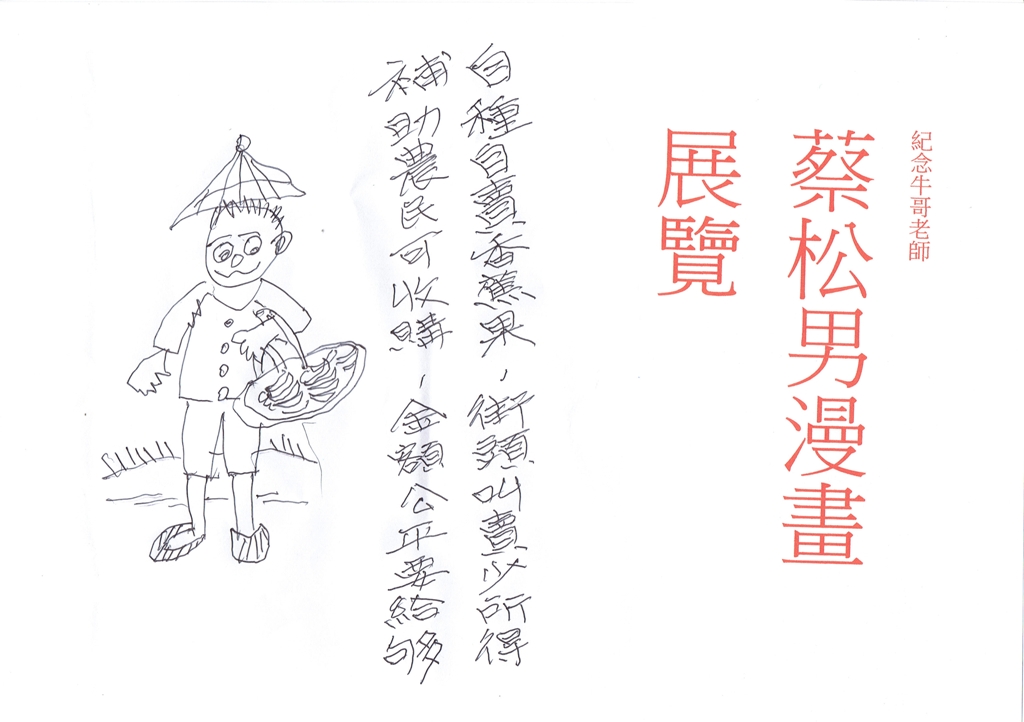 紀念牛哥老師
蔡松男漫畫
展覽
自種自賣香蕉果,街頭叫賣少所得
補助農民可收購,金額公平要給够